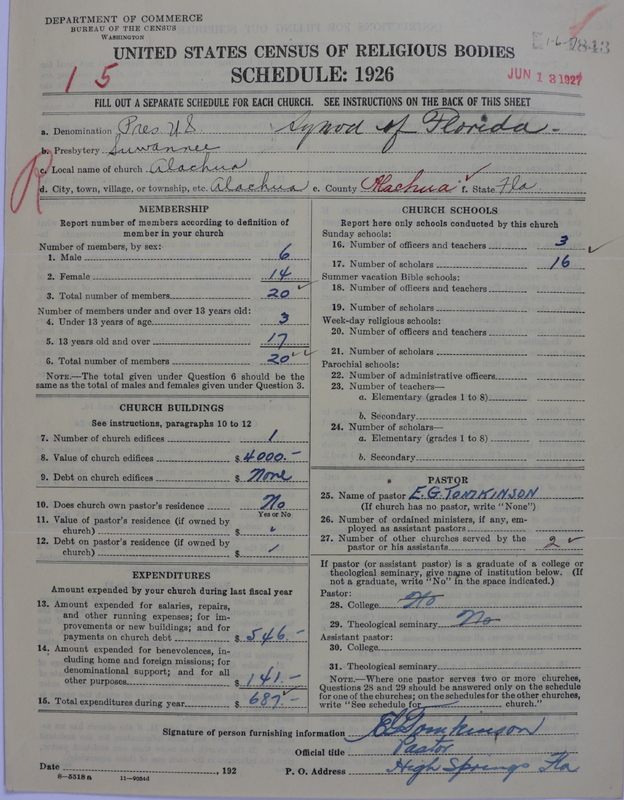 DEPARTMENT OF COMMERCE
BUREAU OF THE CENSUS
WASHINGTON
JUN 13 1927
UNITED STATES CENSUS OF RELIGIOUS BODIES
15
SCHEDULE: 1926
FILL OUT A SEPARATE SCHEDULE FOR EACH CHURCH. SEE INSTRUCTIONS ON THE BACK OF THIS SHEET
a. Denomination Pres US Synod of Florida
b. Presbytery Suwannee
c. Local name of church Alachua
R
d. City, town, village, or township, etc. Alachua e. County Alachua f. State Fla
MEMBERSHIP
Report number of members according to definition of
member in your church
Number of members, by sex:
1. Male 6
2. Female 14
3. Total number of members 20
Number of members under and over 13 years old:
4. Under 13 years of age 3
5. 13 years old and over 17
6. Total number of members 20
NOTE.—The total given under Question 6 should be
same as the total of males and females given under Question 3.
CHURCH BUILDINGS
See instructions, paragraphs 10 to 12
7. Number of church edifices 1
8. Value of church edifices $ 4000.-
9. Debt on church edifices $ None
10. Does church own pastor's residence No
Yes or No
11. Value of pastor's residence (if owned by
church) $ "
12. Debt on pastor's residence (if owned by
church) $
EXPENDITURES
Amount expended by your church during last fiscal year
13. Amount expended for salaries, repairs,
and other running expenses; for im-
provements or new buildings; and for
payments on church debt $ 546.-
14. Amount expended for benevolences, in-
cluding home and foreign missions; for
denominational support; and for all
other purposes $ 141.-
15. Total expenditures during year $ 687.-
CHURCH SCHOOLS
Report here only schools conducted by this church
Sunday schools:
16. Number of officers and teachers 3
17. Number of scholars 16
Summer vacation Bible schools:
18. Number of officers and teachers
19. Number of scholars
Week-day religious schools:
20. Number of officers and teachers
21. Number of scholars
Parochial schools:
22. Number of administrative officers
23. Number of teachers—
a. Elementary (grades 1 to 8)
b. Secondary
24. Number of scholars—
a. Elementary (grades 1 to 8)
b. Secondary
PASTOR
25. Name of pastor E.G. TOMKINSON
(If church has no pastor, write "None")
26. Number of ordained ministers, if any, em-
ployed as assistant pastors
27. Number of other churches served by the
pastor or his assistants 2
If pastor (or assistant pastor) is a graduate of a college or
theological seminary, give name of institution below. (If
not a graduate, write "No" in the space indicated.)
Pastor:
28. College No
29. Theological seminary No
Assistant pastor:
30. College
31. Theological seminary
NOTE.—Where one pastor serves two or more churches,
Questions 28 and 29 should be answered only on the schedule
for one of the churches; on the schedules for the other churches,
write "See schedule for church."
Signature of person furnishing information EG Tomkinson
Official title Pastor
Date , 192 P. O. Address High Springs Fla
8—5518a